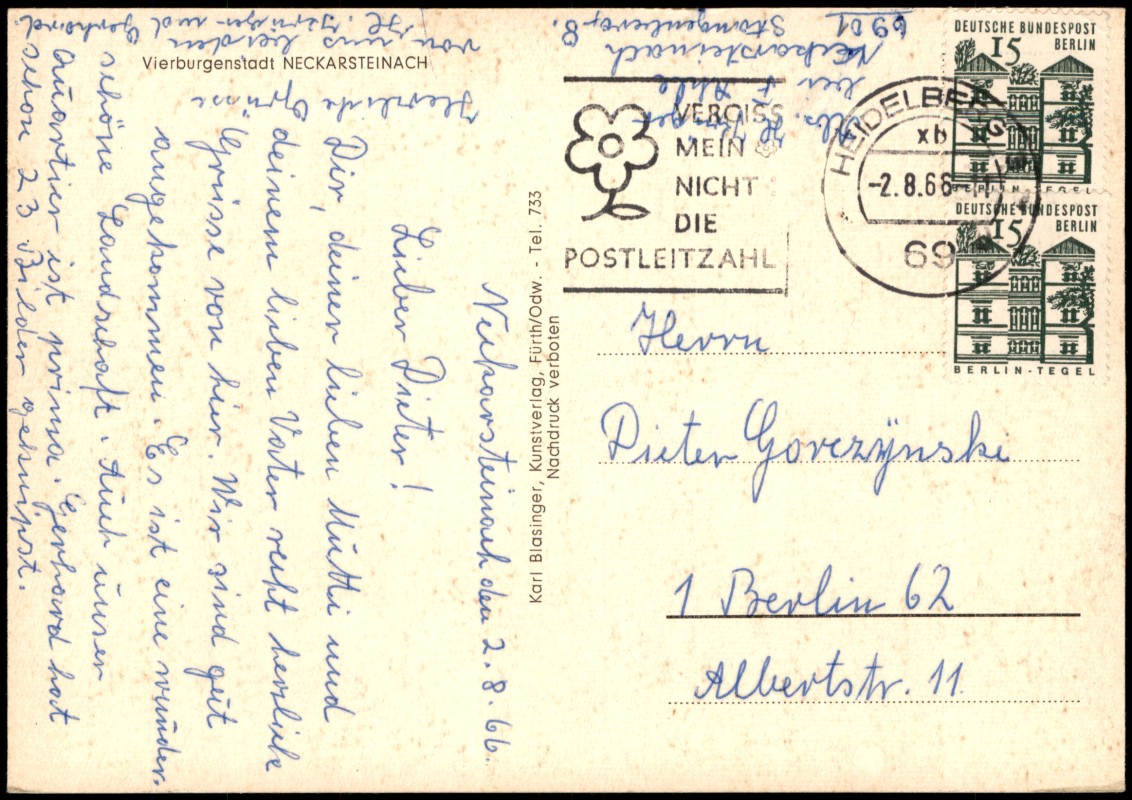 Vierburgenstadt NECKARSTEINACH
Neckarsteinach den 2. 8. 66.
Lieber Dieter!
Dir, deiner lieben Mutti und
deinem lieben Vater recht herzliche
Grüsse von hier. Wir sind gut
angekommen. Es ist eine wunder-
schöne Landschaft. Auch unser
Quartier ist prima. Gerhard hat
schon 23 Bilder geknipst.
Herzliche Grüsse
von uns beiden
H. Jürgen und Gerhard.
Karl Blasinger, Kunstverlag, Fürth/Odw. - Tel. 733
Nachdruck verboten
Abs. H. Jürgen
Neckarsteinach
6901
VERGISS
MEIN
NICHT
DIE
POSTLEITZAHL
HEIDELBERG
xb
-2.8.66
69
DEUTSCHE BUNDESPOST
BERLIN
15
BERLIN-TEGEL
DEUTSCHE BUNDESPOST
BERLIN
15
BERLIN-TEGEL
Herrn
Dieter Gorczýnski
1 Berlin 62
Albertstr. 11.